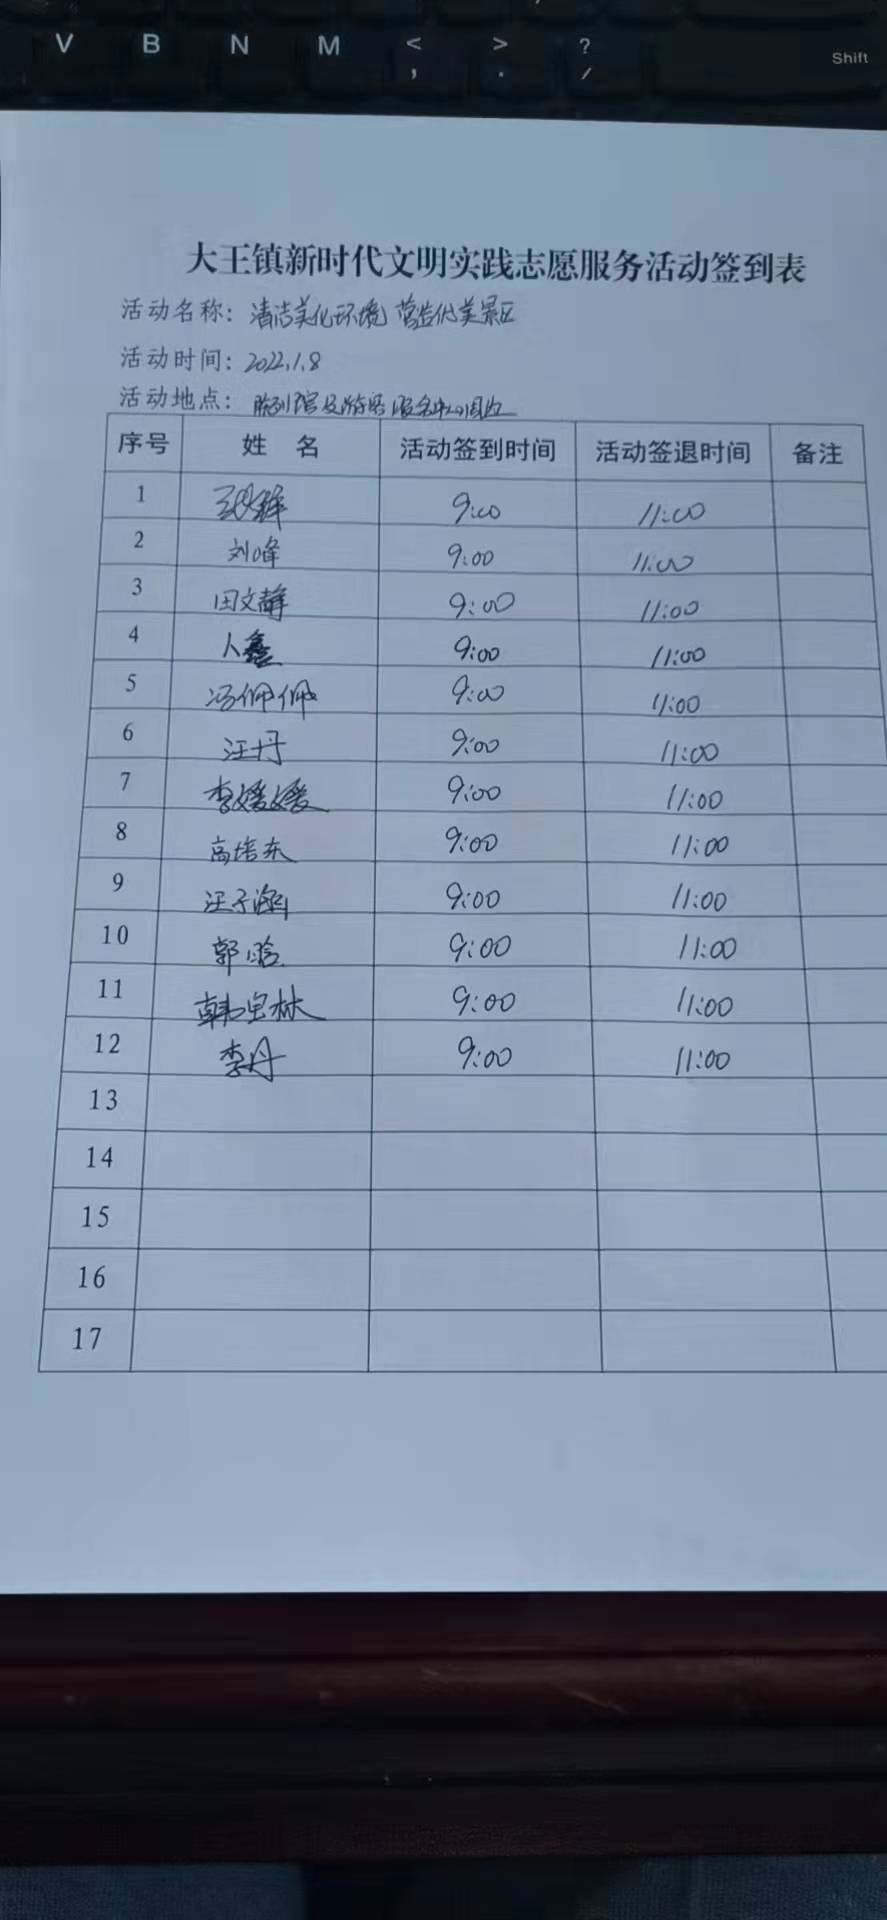 V B N M < , > . ? / Shift
大王镇新时代文明实践志愿服务活动签到表
活动名称：清洁美化环境 营造优美景区
活动时间：2022.1.8
活动地点：陈列馆及游客服务中心周边
序号 姓 名 活动签到时间 活动签退时间 备注
1 9:00 11:00
2 刘峰 9:00 11:00
3 田文静 9:00 11:00
4 鑫 9:00 11:00
5 冯佩佩 9:00 11:00
6 汪丹 9:00 11:00
7 李媛媛 9:00 11:00
8 高培东 9:00 11:00
9 汪子涵 9:00 11:00
10 郭晗 9:00 11:00
11 韩 林 9:00 11:00
12 李丹 9:00 11:00
13
14
15
16
17